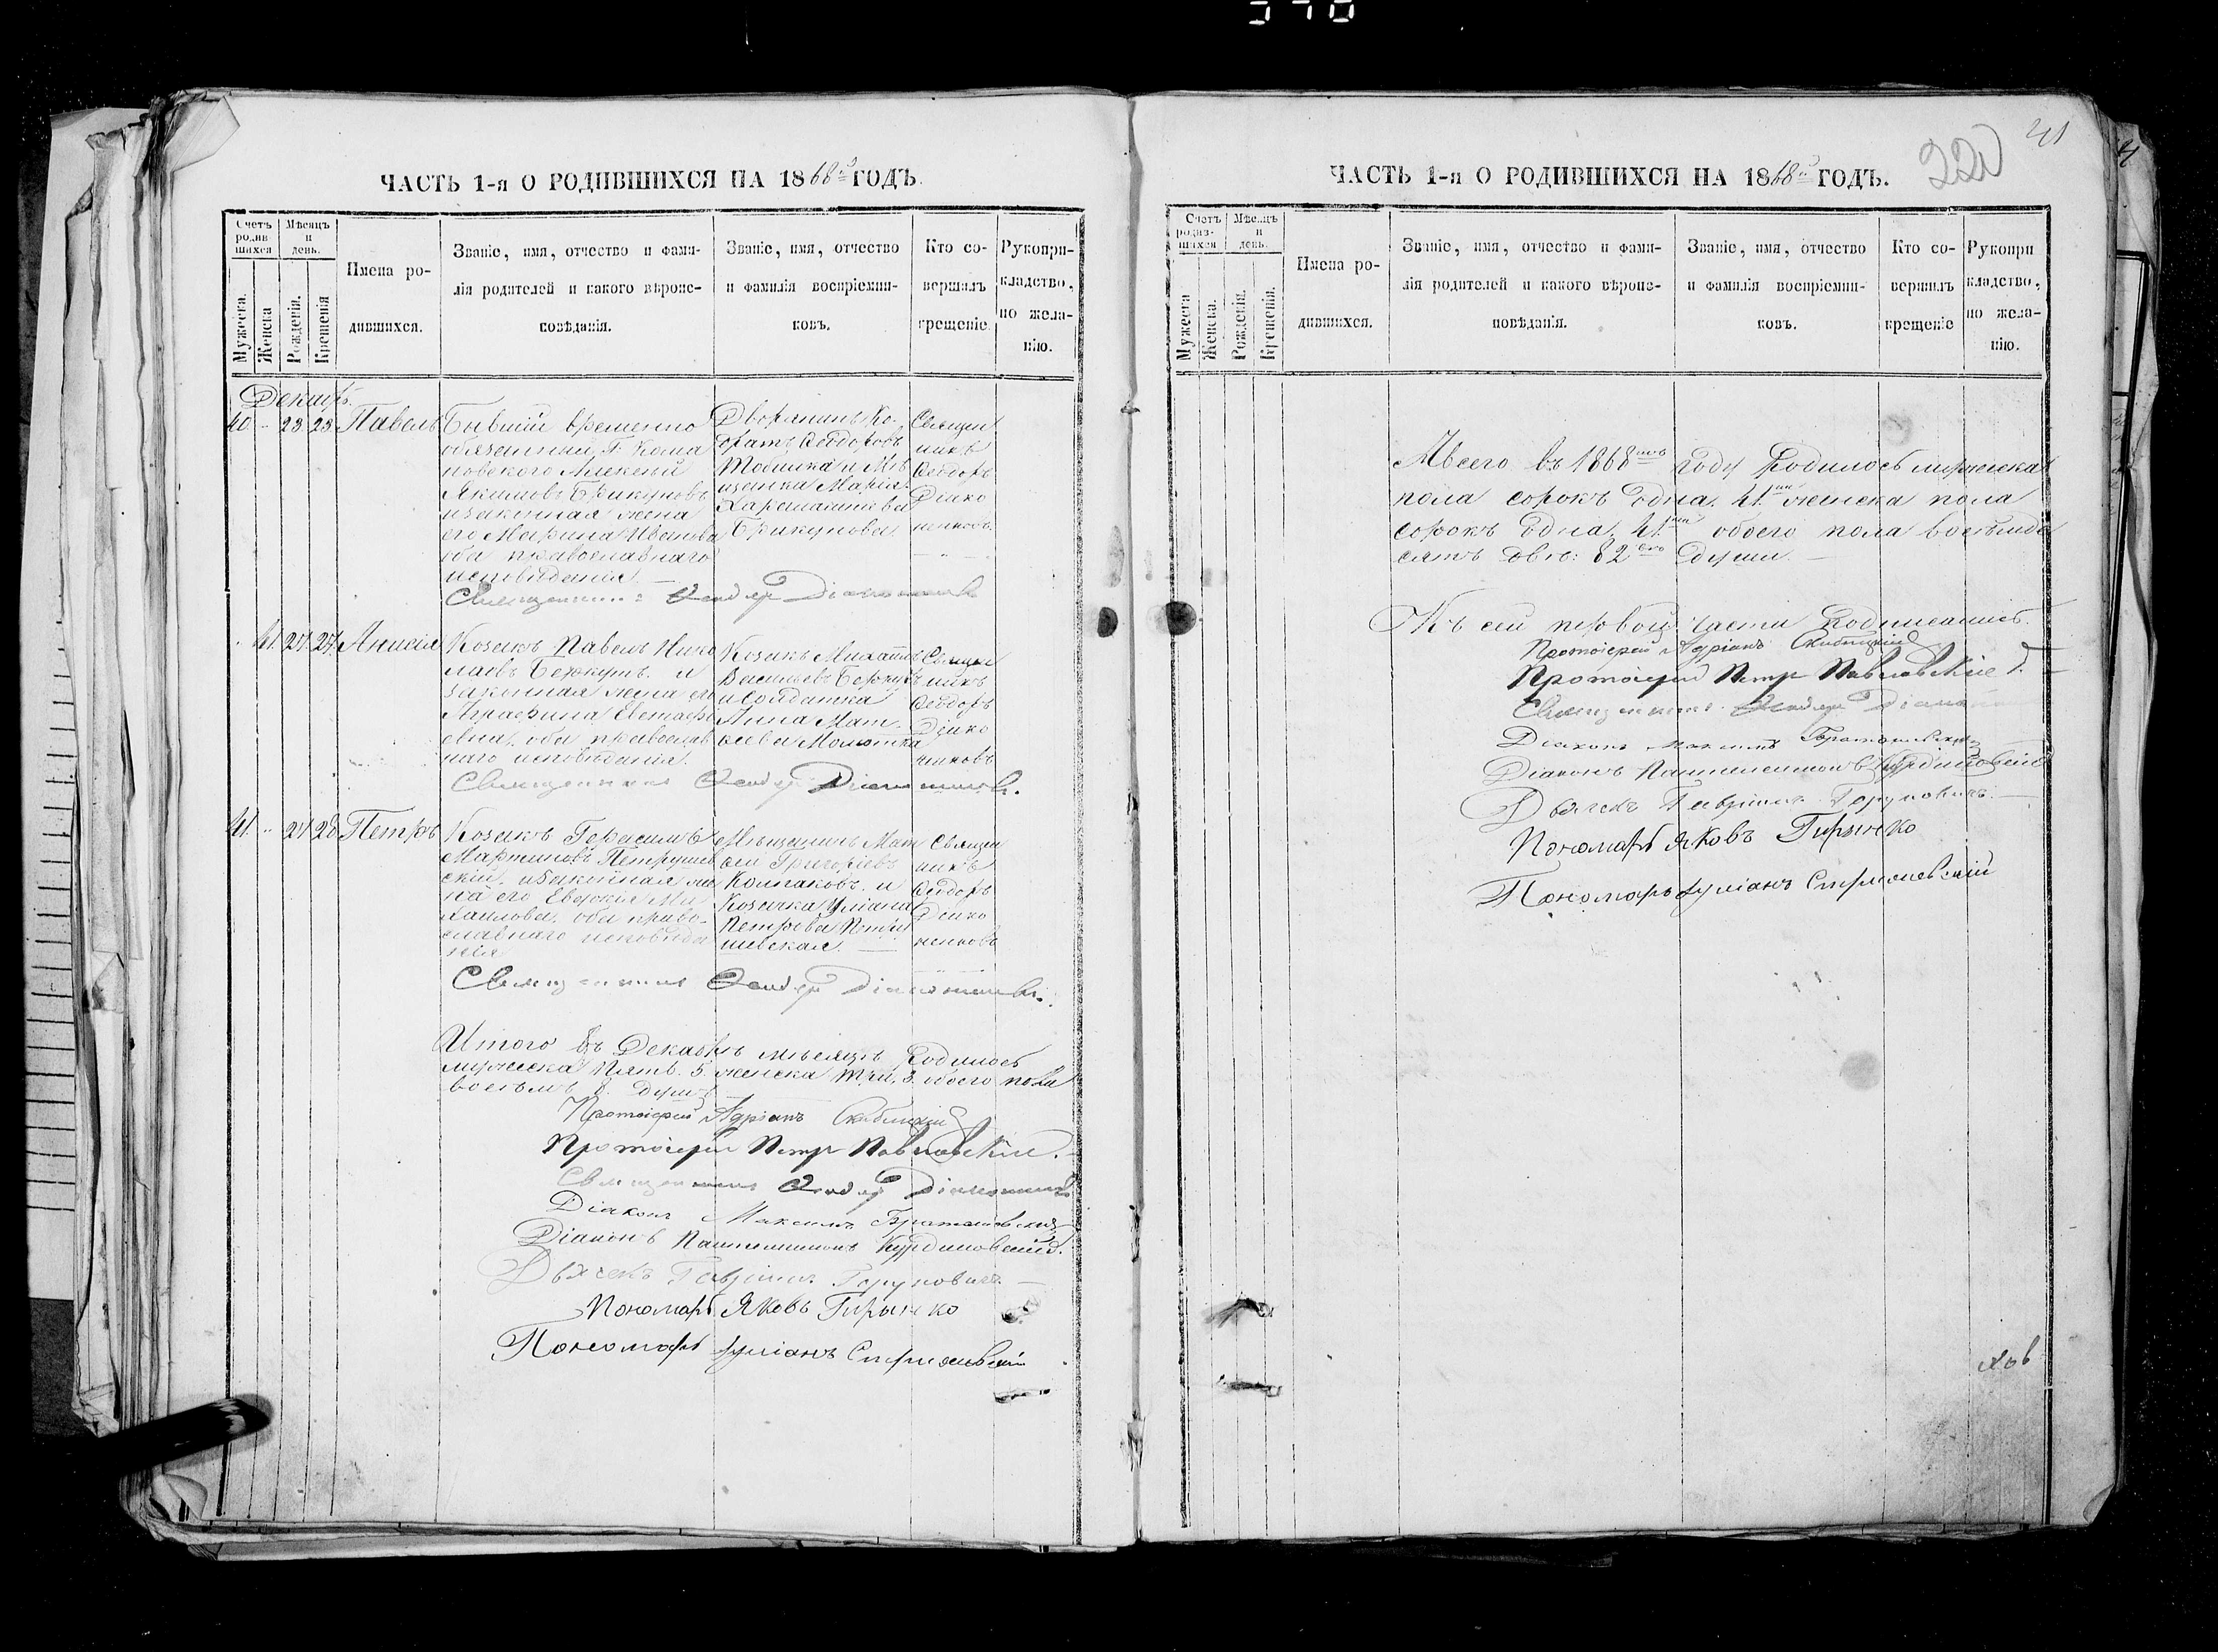 ЧАСТЬ 1-я О РОДИВШИХСЯ НА 1868й ГОДЪ.
Счетъ родив-шихся
Мѣсяцъ и день.
Мужеска.
Женска
Рожденія.
Крещенія
Имена ро-
дившихся.
Званіе, имя, отчество и фами-
лія родителей и какого вѣроис-
повѣданія.
Званіе, имя, отчество
и фамилія воспріемни-
ковъ.
Кто со-
вершалъ
крещеніе.
Рукопри-
кладство,
по жела-
нію.
Декабрь.
40 - 23 23 Павелъ
Бывшій временно
обязанный Г. Кома
новского Алексѣй
Якимовъ Брикуновъ
и законная жена
его Марина Иванова
оба православнаго
исповѣданія. —
Дворянинъ Ко-
Феодоровъ
и Мѣ
щанка Марія
Харалампіева
Брикунова.
Священ
никъ
Феодоръ
Діако
ненковъ.
Священникъ Феодоръ Діаконенковъ
41. 27. 27. Анисія
Козакъ Павелъ Нико
лаевъ Беркутъ и
законная жена его
Агрифина Евстафі
евна, оба православ
наго исповѣданія.
Козакъ Михаилъ
Васильевъ Беркутъ
и Солдатка
Анна Мат-
ѳеева
Священ
никъ
Феодоръ
Діако
ненковъ
Священникъ Феодоръ Діаконенковъ.
41. - 27 28 Петръ
Козакъ Герасимъ
Мартиновъ Петруше
скій, и законная же
на его Евдокія Ми
хаилова, оба право-
славнаго исповѣда
нія
Мѣщанинъ Мат
ѳей Григоріевъ
Колпаковъ. и
Козачка Уліана
Петрова Петру
шевская. —
Священ
никъ
Феодоръ
Діако
ненковъ
Священникъ Феодоръ Діаконенковъ.
Итого въ Декабрѣ мѣсяцѣ Родилось
мужеска пять. 5. женска три. 3. обоего пола
восемь 8. душъ
Протоіерей Адріанъ Скаблицкій
Протоіерей Петръ Павловскій.
Священникъ Феодоръ Діаконенковъ
Діаконъ Максимъ
Діаконъ Пантелеимонъ Курдиновскій.
Дьячекъ Гавріилъ Горуновичъ —
Пономарь Яковъ Гирынко
Пономарь Іуліанъ
ЧАСТЬ 1-я О РОДИВШИХСЯ НА 1868й ГОДЪ.
220
41
Счетъ родив-шихся
Мѣсяцъ и день.
Мужеска
Женска.
Рожденія.
Крещенія.
Имена ро-
дившихся.
Званіе, имя, отчество и фами-
лія родителей и какого вѣроис-
повѣданія.
Званіе, имя, отчество
и фамилія воспріемни-
ковъ.
Кто со-
вершилъ
крещеніе
Рукопри
кладство,
по жела-
нію.
А всего въ 1868мъ году Родилось мужеска
пола сорокъ одна. 41. женска пола
сорокъ одна, 41. обоего пола восемьде
сятъ двѣ: 82 души. —
Къ сей первой части Подписались.
Протоіерей Адріанъ Скаблицкій
Протоіерей Петръ Павловскій.
Священникъ Феодоръ
Діаконъ Максимъ
Діаконъ Пантелеимонъ Курдиновскій
Дьячекъ Гавріилъ Горуновичъ. —
Пономарь Яковъ Гирынко
Пономарь Іуліанъ